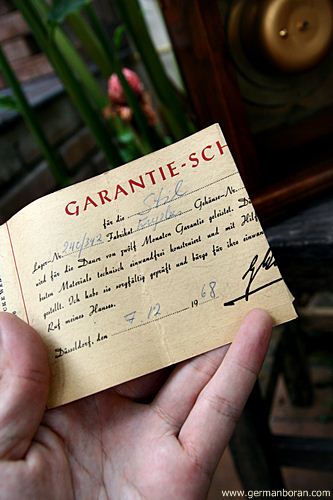 GARANTIE-SCH
für die Stil
Lager-Nr. 240/342 Fabrikat Gehäuse-Nr.
wird für die Dauer von zwölf Monaten Garantie geleistet. D
besten Materials technisch einwandfrei konstruiert und mit Hilf
gestellt. Ich habe sie sorgfältig geprüft und bürge für ihre einwan
Ruf meines Hauses.
Düsseldorf, den 7 12 1968
www.germanboran.com